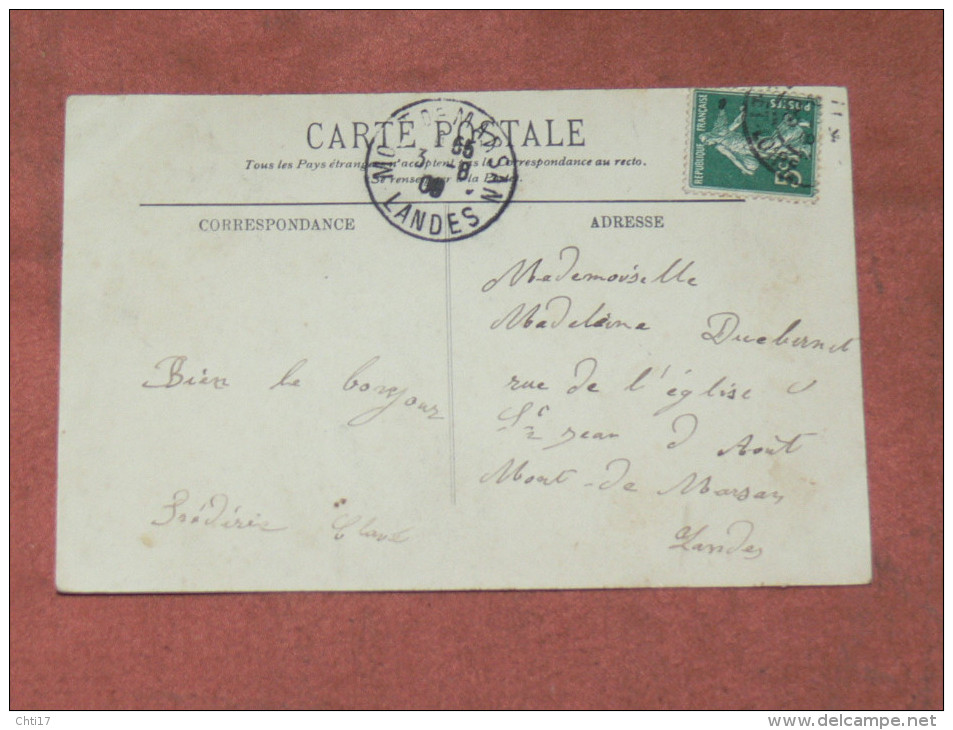 CARTE POSTALE
Tous les Pays étrangers n'acceptent pas la Correspondance au recto.
(Se renseigner à la Poste).
MONT DE MARSAN
3 -8
LANDES
REPUBLIQUE FRANÇAISE
POSTES
5
CORRESPONDANCE
ADRESSE
Bien le bonjour
Frédéric
Mademoiselle
Madeleine Ducbernet
rue de l'église
St jean d Août
Mont-de Marsan
Landes
Chti17
www.delcampe.net